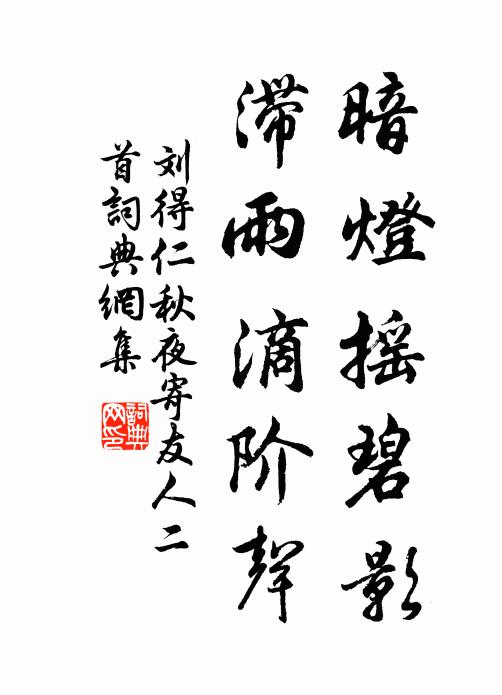 暗燈摇碧影
滞雨滴阶聲
刘得仁秋夜寄友人二
首詞典網集
詞典
网印